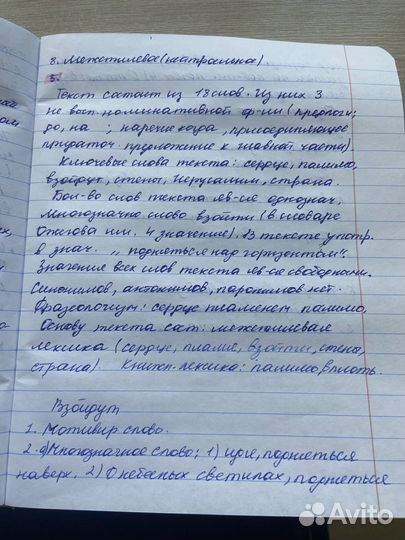 8. Межстилевое (нейтральное).
5.
Текст состоит из 18 слов. Из них 3
не вып. номинативной ф-ии (предлоги:
до, на ; наречие когда, присоединяющее
придаточ. предложение к главной части).
Ключевые слова текста: сердце, пламя,
взойдут, стены, Иерусалим, страна.
Бол-во слов текста яв-ся однознач,
многозначно слово взойти (в словаре
Ожегова им. 4 значение). В тексте употр.
в знач. „подняться над горизонтом".
Значение всех слов текста яв-ся свободными.
Синонимов, антонимов, паронимов нет.
Фразеологизм: сердце пламенем
Основу текста сост. межстилевая
лексика (сердце, пламя, взойти, стена,
страна). Книжн. лексика: вплоть.
Взойдут
1. Мотивир слово.
2. а) Многозначное слово; 1) идя, подняться
наверх. 2) О небесных светилах, подняться
Avito